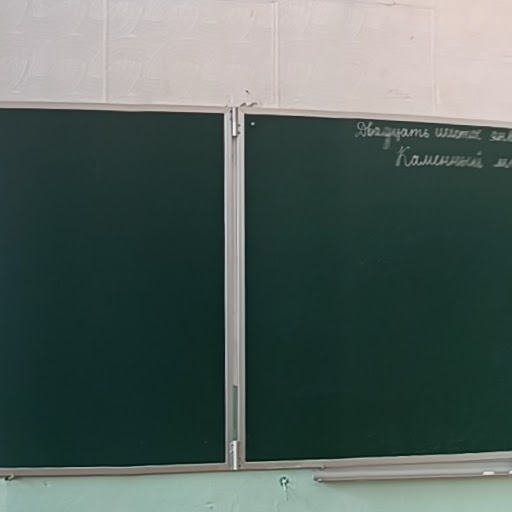 Двадцать шестое янв
Каменный